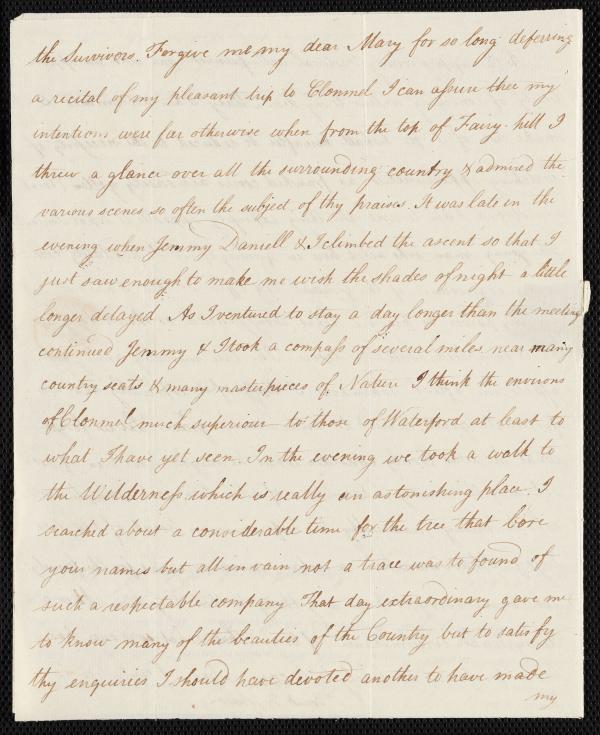 the Survivors. Forgive me my dear Mary for so long deferring
a recital of my pleasant trip to Clonmel I can aſsure thee my
intentions were far otherwise when from the top of Fairy-hill I
threw a glance over all the surrounding country & admired the
various scenes so often the subject of thy praises. It was late in the
evening when Jemmy Daniell & I climbed the ascent so that I
just saw enough to make me wish the shades of night a little
longer delayed. As I ventured to stay a day longer than the meeting
continued Jemmy & I took a compaſs of several miles near many
country seats & many masterpieces of Nature I think the environs
of Clonmel much superiour to those of Waterford at least to
what I have yet seen. In the evening we took a walk to
the Wilderneſs which is really an astonishing place. I
searched about a considerable time for the tree that bore
your names but all in vain not a trace was to found of
such a respectable company That day extraordinary gave me
to know many of the beauties of the Country but to satisfy
thy enquiries I should have devoted another to have made
my